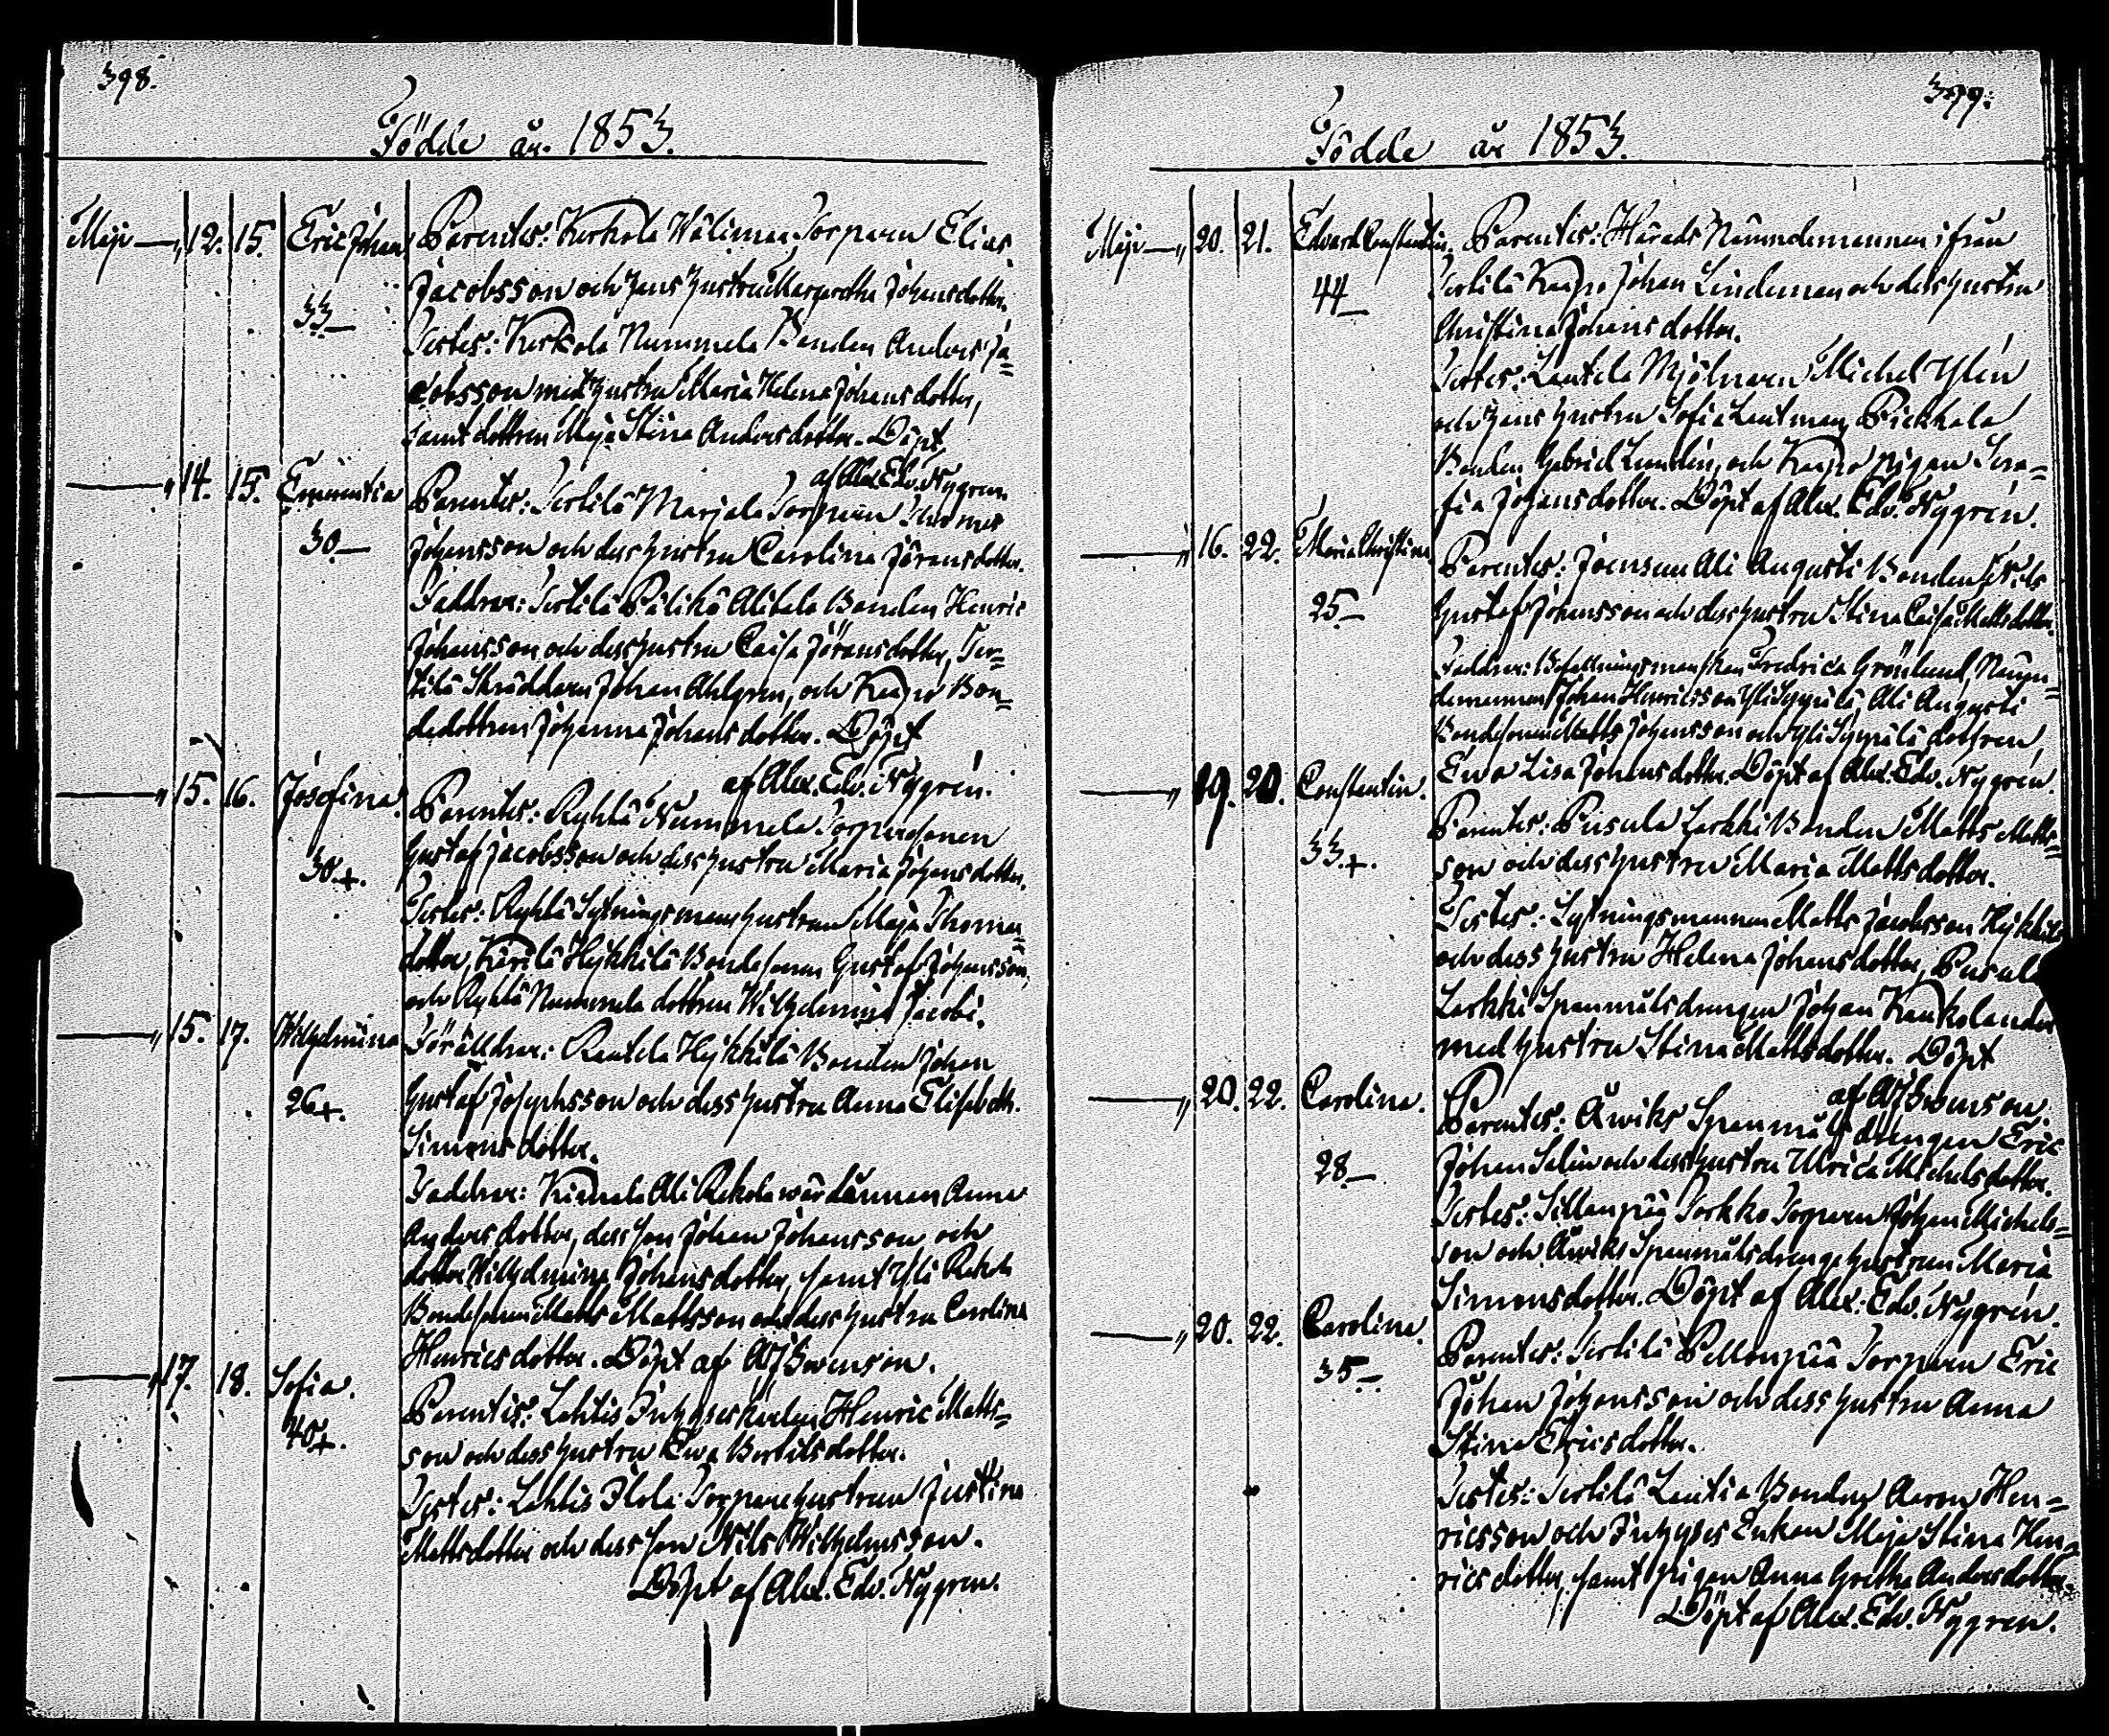 398.
Födde år 1853.
Maji — „ 12. 15. Eric Johan Parentes: Kerkola Wälimaa Torparen Elias
Jacobsson och hans hustru Margaretha Johansdotter.
33 —
Testes: Kerkola Nummela Bonden Anders Ja=
cobsson med hustru Maria Helena Johansdotter,
samt dottren Maja Stina Andersdotter. Döpt
af Alex. Edv. Nygren.
— „ 14. 15. Parentes: Sertilä Marjala Torparen
30 — Johansson och dess hustru Carolina Jöransdotter.
Faddrar: Sertilä Pälikä Alitalo Bonden Henric
Johansson och dess hustru Caisa Jöransdotter, Ser=
tilä Skräddaren Johan Ahlgren, och Kaapo Bon=
dedottren Johanna Johansdotter. Döpt
af Alex. Edv. Nygrén.
— „ 15. 16. Josefina. Parentes: Ryhtä Nummela Torparesonen
30.+. Gustaf Jacobsson och dess hustru Maria Johansdotter.
Testes: Ryhtä Sytningsmans hustrun Maja Thomas=
dotter, Kärilä Heikkilä Bondesonen Gustaf Johansson,
och Ryhtä Nummela dottren Wilhelmina Jacobi.
— „ 15. 17. Wilhelmina Föräldrar: Rautela Heikkilä Bonden Johan
26+. Gustaf Josephsson och dess hustru Anna Elisabeth
Simonsdotter.
Faddrar: Kimala Ali Rekola värdinnan Anna
Andersdotter, dess son Johan Johansson och
dotter Wilhelmina Johansdotter, samt Yli Rekola
Bondesonen Matts Mattsson och dess hustru Carolina
Henricsdotter. Döpt af Swenson.
— „ 17. 18. Sofia. Parentes: Lahtis Inhyseskarlen Henric Matts=
40+. son och dess hustru Ewa Bertilsdotter.
Testes: Lahtis Ilola Torparehustrun Justina
Mattsdotter och dess son Nils Wilhelmsson.
Döpt af Alex. Edv. Nygren.
Födde år 1853.
Maji — „ 20. 21. Edvard Constantin. Parentes: Härads Nämndemannen ifrån
44 — Sertilä Kaapo Johan Lindeman och dess hustru
Christina Johansdotter.
Testes: Lautela Mjölnaren Michel Ylén
och hans hustru Sofia Lautman, Pickkala
Bonden Gabriel Lundén, och Kaapo pigan Sera=
fia Johansdotter. Döpt af Alex. Edv. Nygrén.
— „ 16. 22. Maria Christina. Parentes: Joensuu Ali Augusti Bonden Nils
25 — Gustaf Johansson och dess hustru Stina Caisa Mattsdotter.
Faddrar: Befallningsmanskan Fredrica Grönlund, Nämn=
demannen Johan Henricsson Yli Sypilä, Ali Augusti
Bondesonen Matts Johansson och Yli Sypilä dottren,
Ewa Lisa Johansdotter. Döpt af Alex. Edv. Nygrén.
— „ 19. 20. Constantin. Parentes: Pusula Larkki Bonden Matts Matts=
33.+. son och dess hustru Maria Mattsdotter.
Testes: Sytningsmannen Matts Jacobsson
och dess hustru Helena Johansdotter, Pusula
Larkki Spanmålsdrengen Johan Kankolander
med hustru Stina Mattsdotter. Döpt
af Swenson.
— „ 20. 22. Carolina. Parentes: Äwiks Spanmålsdrengen Eric
28 — Johan Salin och dess hustru Ulrica Michelsdotter.
Testes: Sillanpää Torkko Torparen Johan Michels=
son och Äwiks Spanmålsdrengehustrun Maria
Simonsdotter. Döpt af Alex. Edv. Nygrén.
— „ 20. 22. Carolina. Parentes: Sertilä Pellonpää Torparen Eric
35 — Johan Johansson och dess hustru Anna
Stina Ericsdotter.
Testes: Sertilä Lautia Bonden Aaron Hen=
ricsson och Inhyses Enkan Maja Stina Hen=
ricsdotter, samt pigan Anna Gretha Andersdotter.
Döpt af Alex. Edv. Nygren.